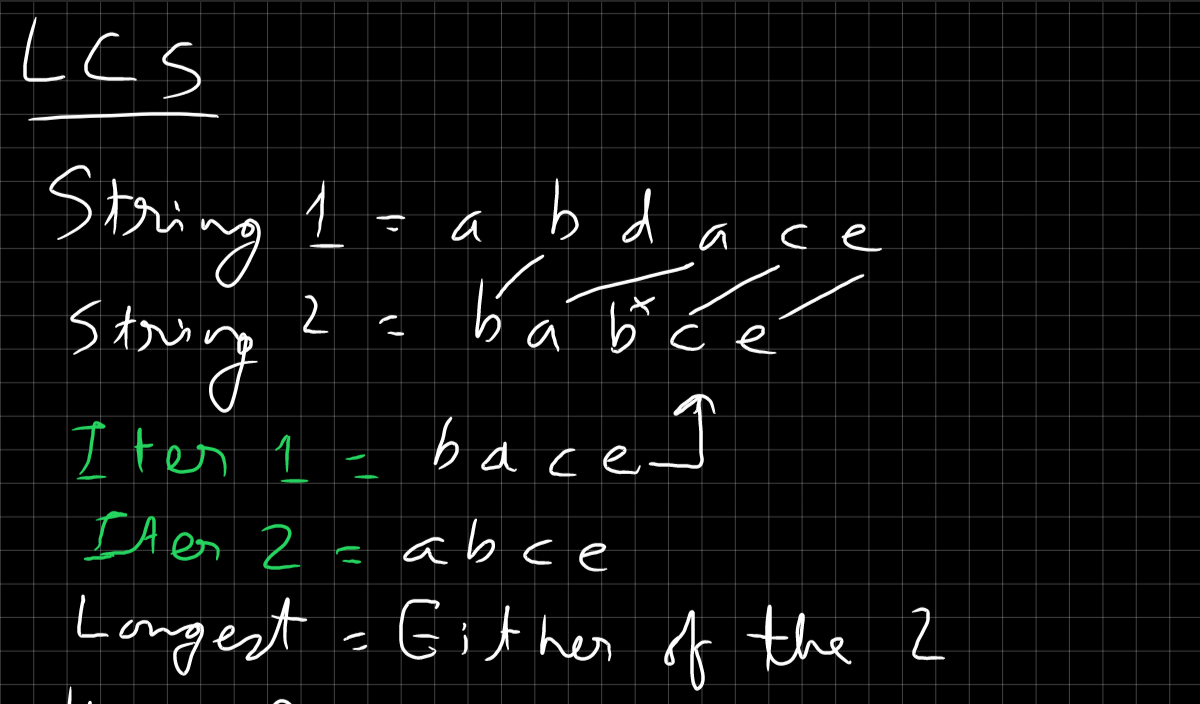 LCS
String 1 = a b d a c e
String 2 = b a b x c e
Iter 1 = b a c e
Iter 2 = a b c e
Longest = Either of the 2